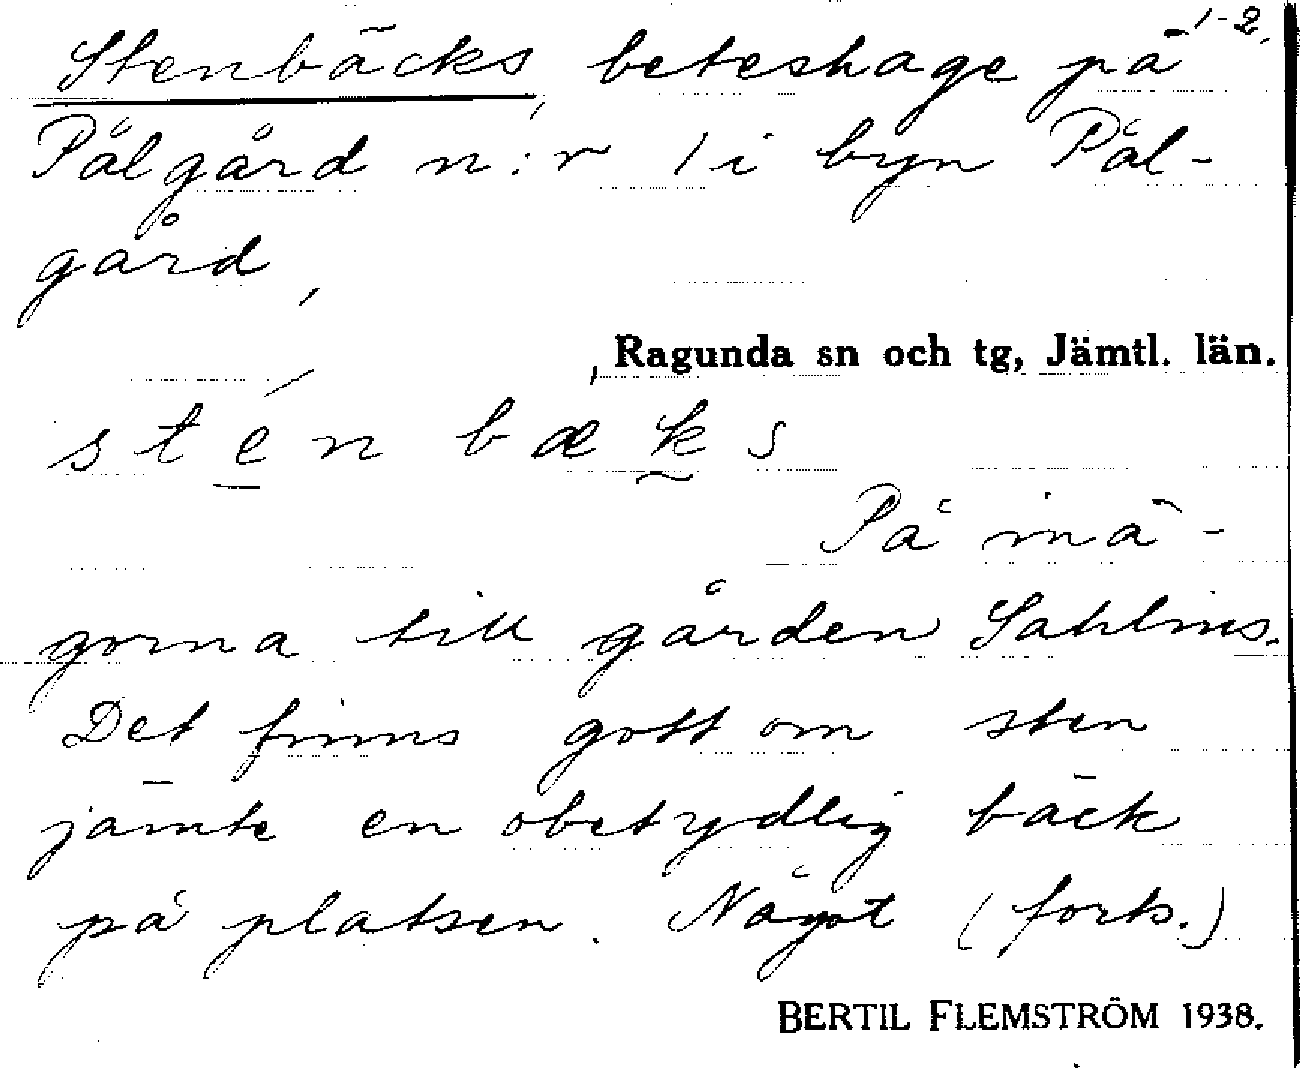 1-2.
Stenbäcks, beteshage på
Pålgård n:r 1 i byn Pål-
gård,
, Ragunda sn och tg, Jämtl. län.
sténbæks
På inä-
gorna till gården Sahlins.
Det finns gott om sten
jämte en obetydlig bäck
på platsen. Något (forts.)
BERTIL FLEMSTRÖM 1938.